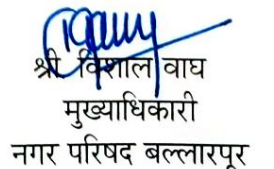 श्री. विशाल वाघ
मुख्याधिकारी
नगर परिषद बल्लारपूर